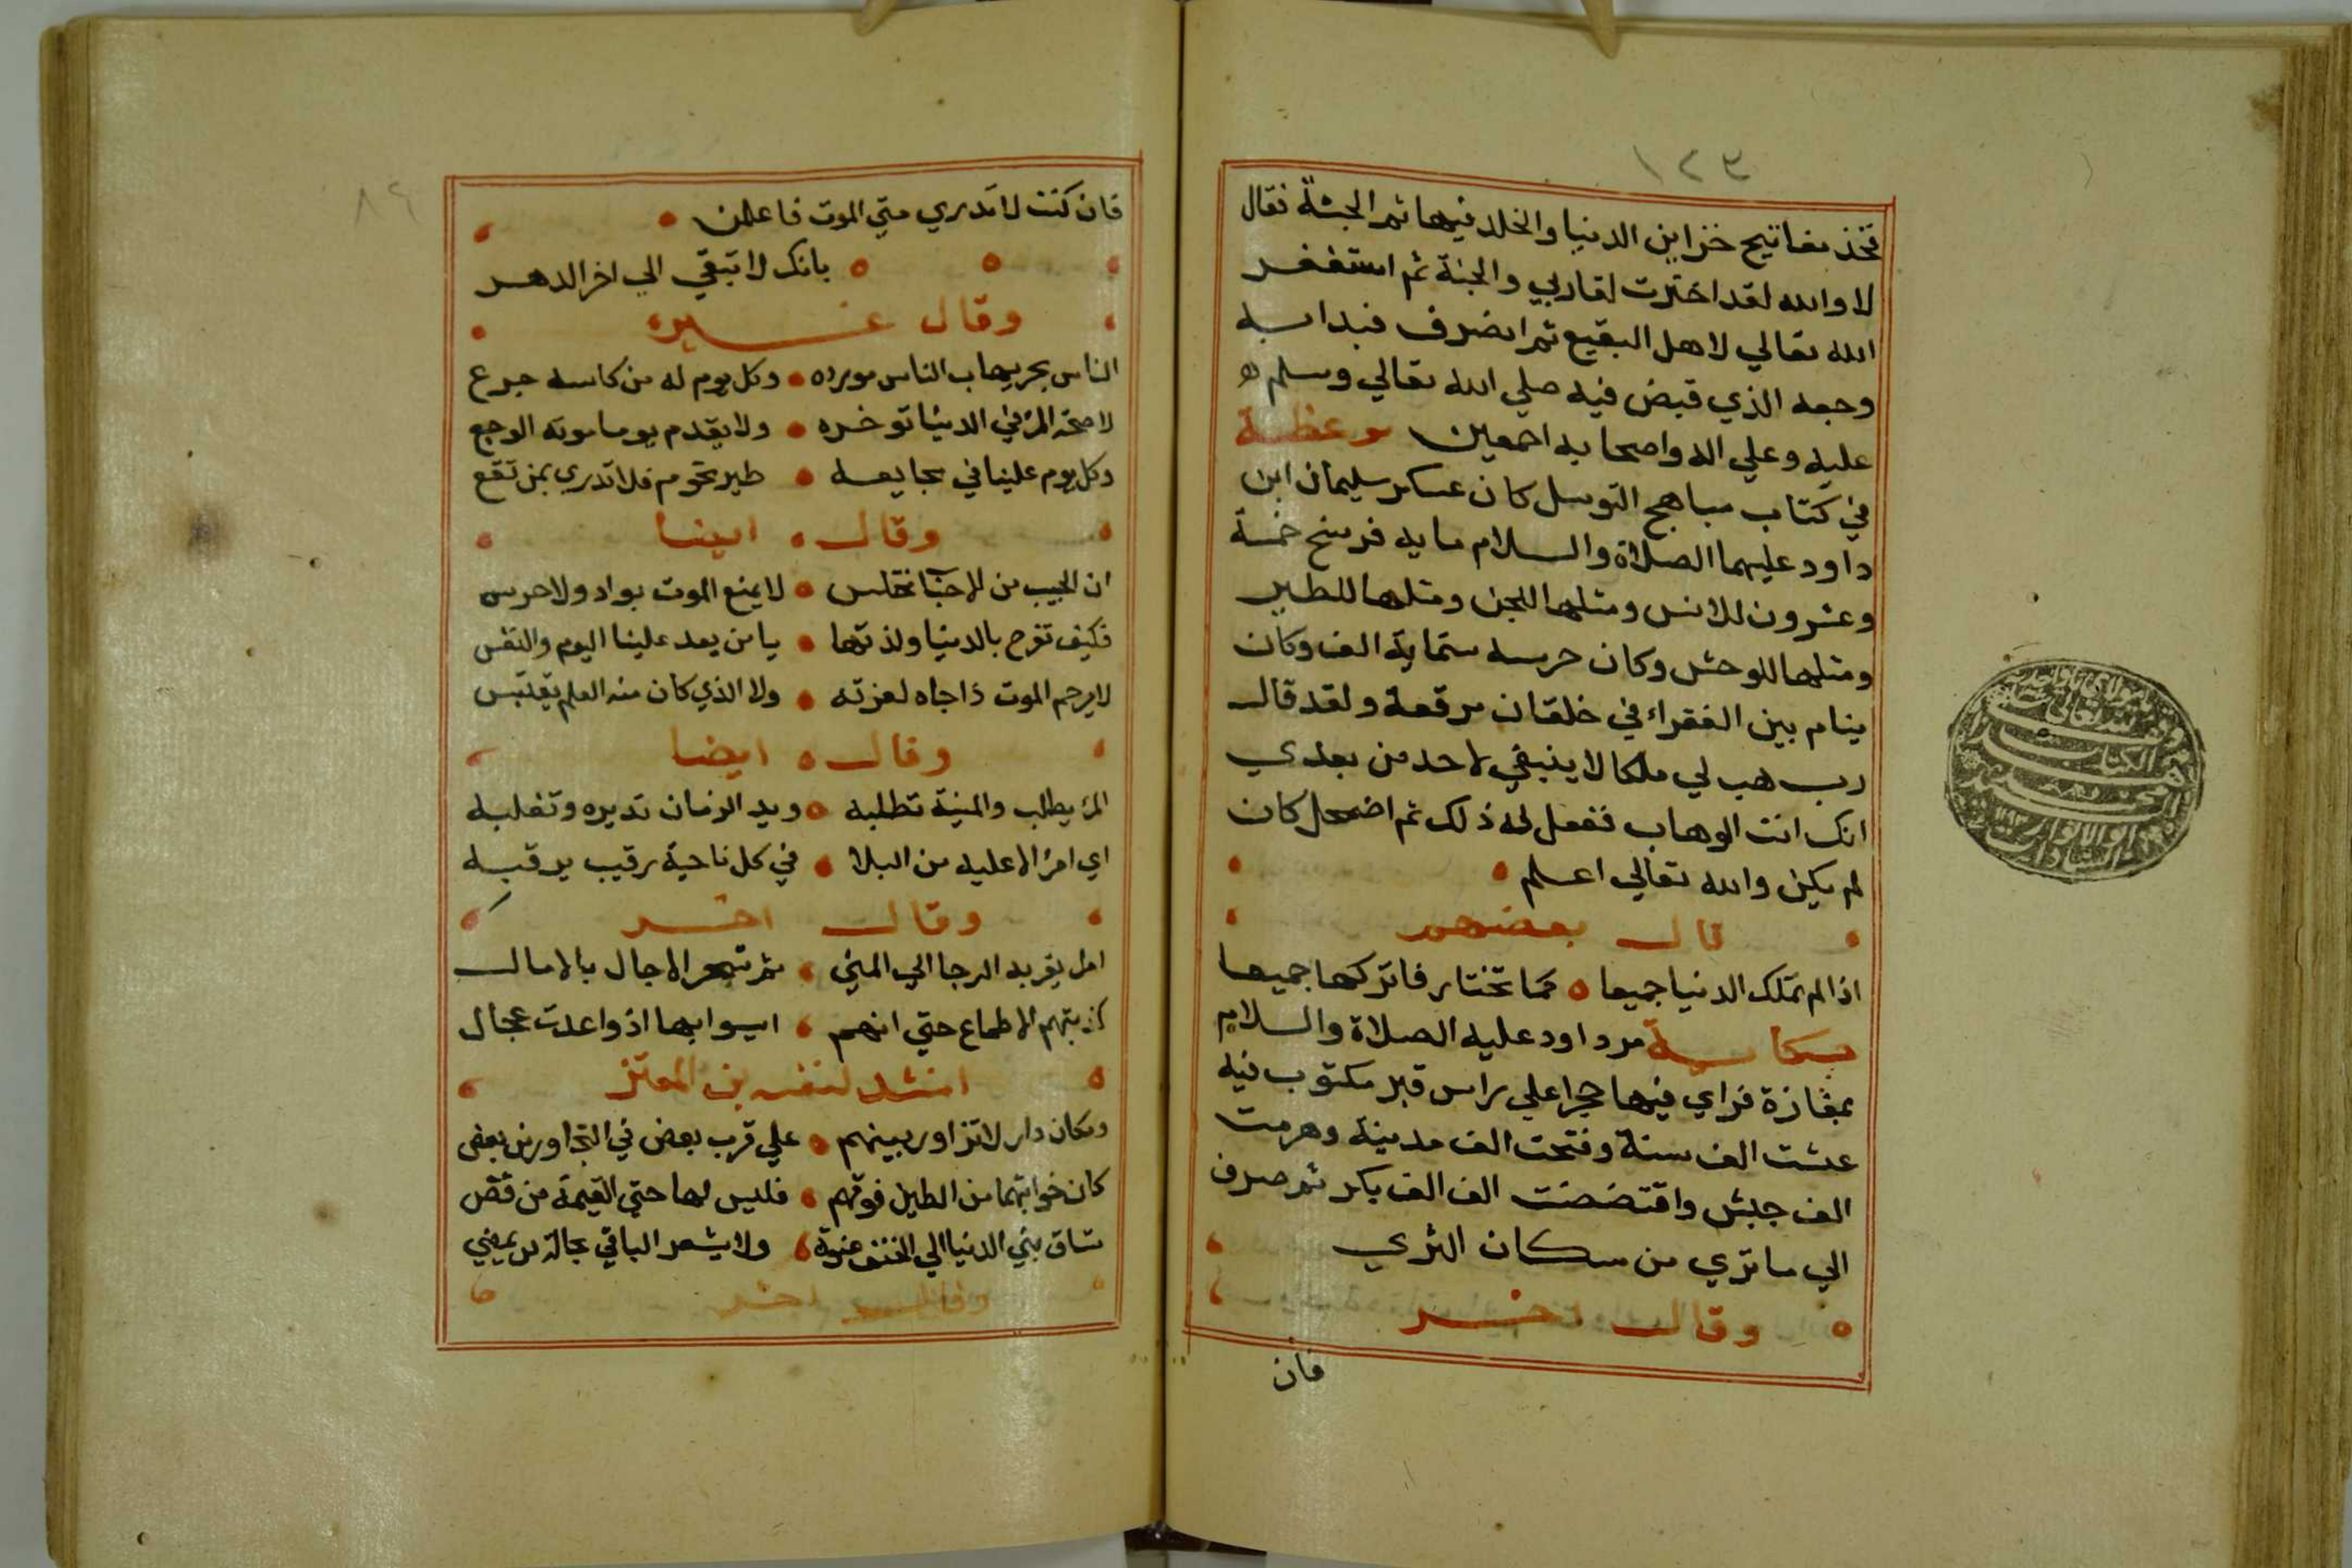 ١٢٣
فخذ مفاتيح خزاين الدنيا والخلد فيها ثم الجنة فقال
لا والله لقد اخترت لقا ربي والجنة ثم استغفر
الله تعالي لاهل البقيع ثم انصرف فبدا به
وجعه الذي قبض فيه صلي الله تعالي وسلم
عليه وعلي اله واصحابه اجمعين موعظة
في كتاب مباهج التوسل كان عسكر سليمان ابن
داود عليهما الصلاة والسلام مايه فرسخ خمسة
وعشرون للانس ومثلها للجن ومثلها للطير
ومثلها للوحش وكان حرسه ستماية الف وكان
ينام بين الفقراء في خلقان مرقعة ولقد قال
رب هب لي ملكا لا ينبغي لاحد من بعدي
انك انت الوهاب ففعل له ذلك ثم اضمحل كان
لم يكن والله تعالي اعلم
قال بعضهم
اذا لم تملك الدنيا جميعا كما تختار فاتركها جميعا
حكاية مر داود عليه الصلاة والسلام
بمفازة فراي فيها حجرا علي راس قبر مكتوب فيه
عشت الف سنة وفتحت الف مدينة وهزمت
الف جيش واقتضضت الف الف بكر ثم صرف
الي ما تري من سكان الثري
وقال اخر
فان
٨٢
فان كنت لا تدري متي الموت فاعلمن
بانك لا تبقي الي اخر الدهر
وقال غيره
الناس بحر يهاب الناس مورده وكل يوم له من كاسه جرع
لا صحة المرء في الدنيا توخره ولا يقدم يوما موته الوجع
وكل يوم علينا في فجايعه طير تحوم فلا تدري بمن تقع
وقال ايضا
ان الحبيب من الاحباب مختلس لا يمنع الموت بواد ولا حرس
فكيف تفرح بالدنيا ولذتها يا من يعد علينا اليوم والنفس
لا يرحم الموت ذا جاه لعزته ولا الذي كان منه العلم يقتبس
وقال ايضا
المرء يطلب والمنية تطلبه ويد الزمان تديره وتغلبه
اي امرء الا عليه من البلا في كل ناحية رقيب يرقبه
وقال اخر
امل يقربه الرجا الي المني ثم تهجر الاجال بالامال
كذبتهم الاطماع حتي انهم ايسوا بها اذ واعدت بمحال
انشد لنفسه بن المعتز
وسكان دار لا تزاور بينهم علي قرب بعض في التجاور من بعض
كان خواتما من الطين فوقهم فليس لها حتي القيمة من فض
تساق بني الدنيا الي الحتف عنوة ولا يشعر الباقي بحالة من يمضي
وقال اخر